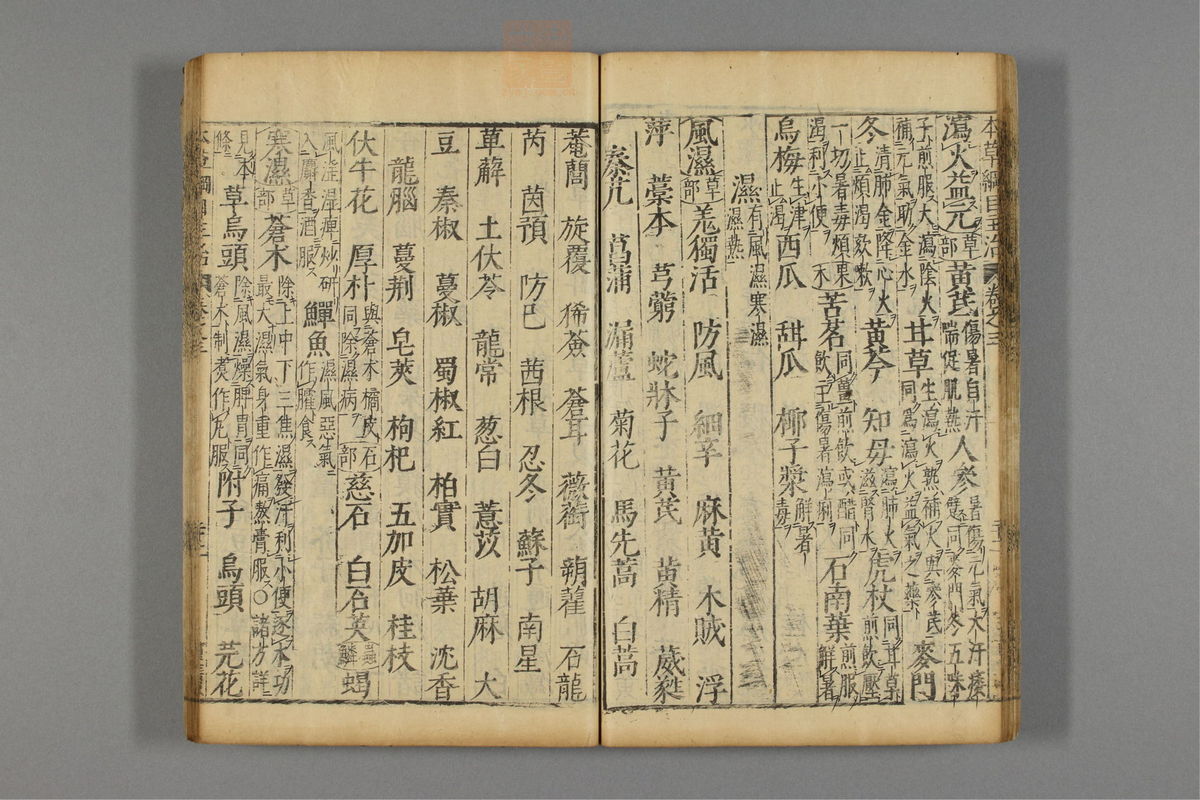 本草綱目主治 卷之三
瀉火益元 草部 黄芪 傷暑自汗喘促肌熱 人參 暑傷元氣大汗痿躄同麥門冬五味
子煎服大瀉陰火補元氣助金水 甘草 生瀉火熟補火與參芪同爲瀉火益氣之藥 麥門
冬 清肺金降心火止煩渴欬嗽 黄芩 知母 瀉肺火滋腎水 虎杖 同甘草煎飲壓
一切暑毒煩渴利小便 果木 苦茗 同薑煎飲或醋同飲主傷暑瀉痢 石南葉 煎服解暑
烏梅 生津止渴 西瓜 甜瓜 椰子漿 解暑毒
濕 有風濕寒濕濕熱
風濕 草部 羌獨活 防風 細辛 麻黄 木賊 浮
萍 藁本 芎藭 蛇牀子 黄芪 黄精 葳蕤
秦艽 菖蒲 漏蘆 菊花 馬先蒿 白蒿
菴䕡 旋覆 豨薟 蒼耳 薇銜 蒴藋 石龍
芮 茵蕷 防己 茜根 忍冬 蘇子 南星
萆薢 土伏苓 龍常 葱白 薏苡 胡麻 大
豆 秦椒 蔓椒 蜀椒紅 柏實 松葉 沈香
龍腦 蔓荆 皂莢 枸杞 五加皮 桂枝
伏牛花 厚朴 與蒼术橘皮同除濕病 石部 慈石 白石英 蟲鱗 蝎
風淫濕痺炒研入麝香酒服 鱓魚 濕風惡氣作臛食
寒濕 草部 蒼术 除上中下三焦濕發汗利小便逐水功最大濕氣身重作痛熬膏服○諸方詳
見本條 草烏頭 除風濕燥脾胃同蒼术制煮作丸服 附子 烏頭 芫花
本草綱目主治 卷之三